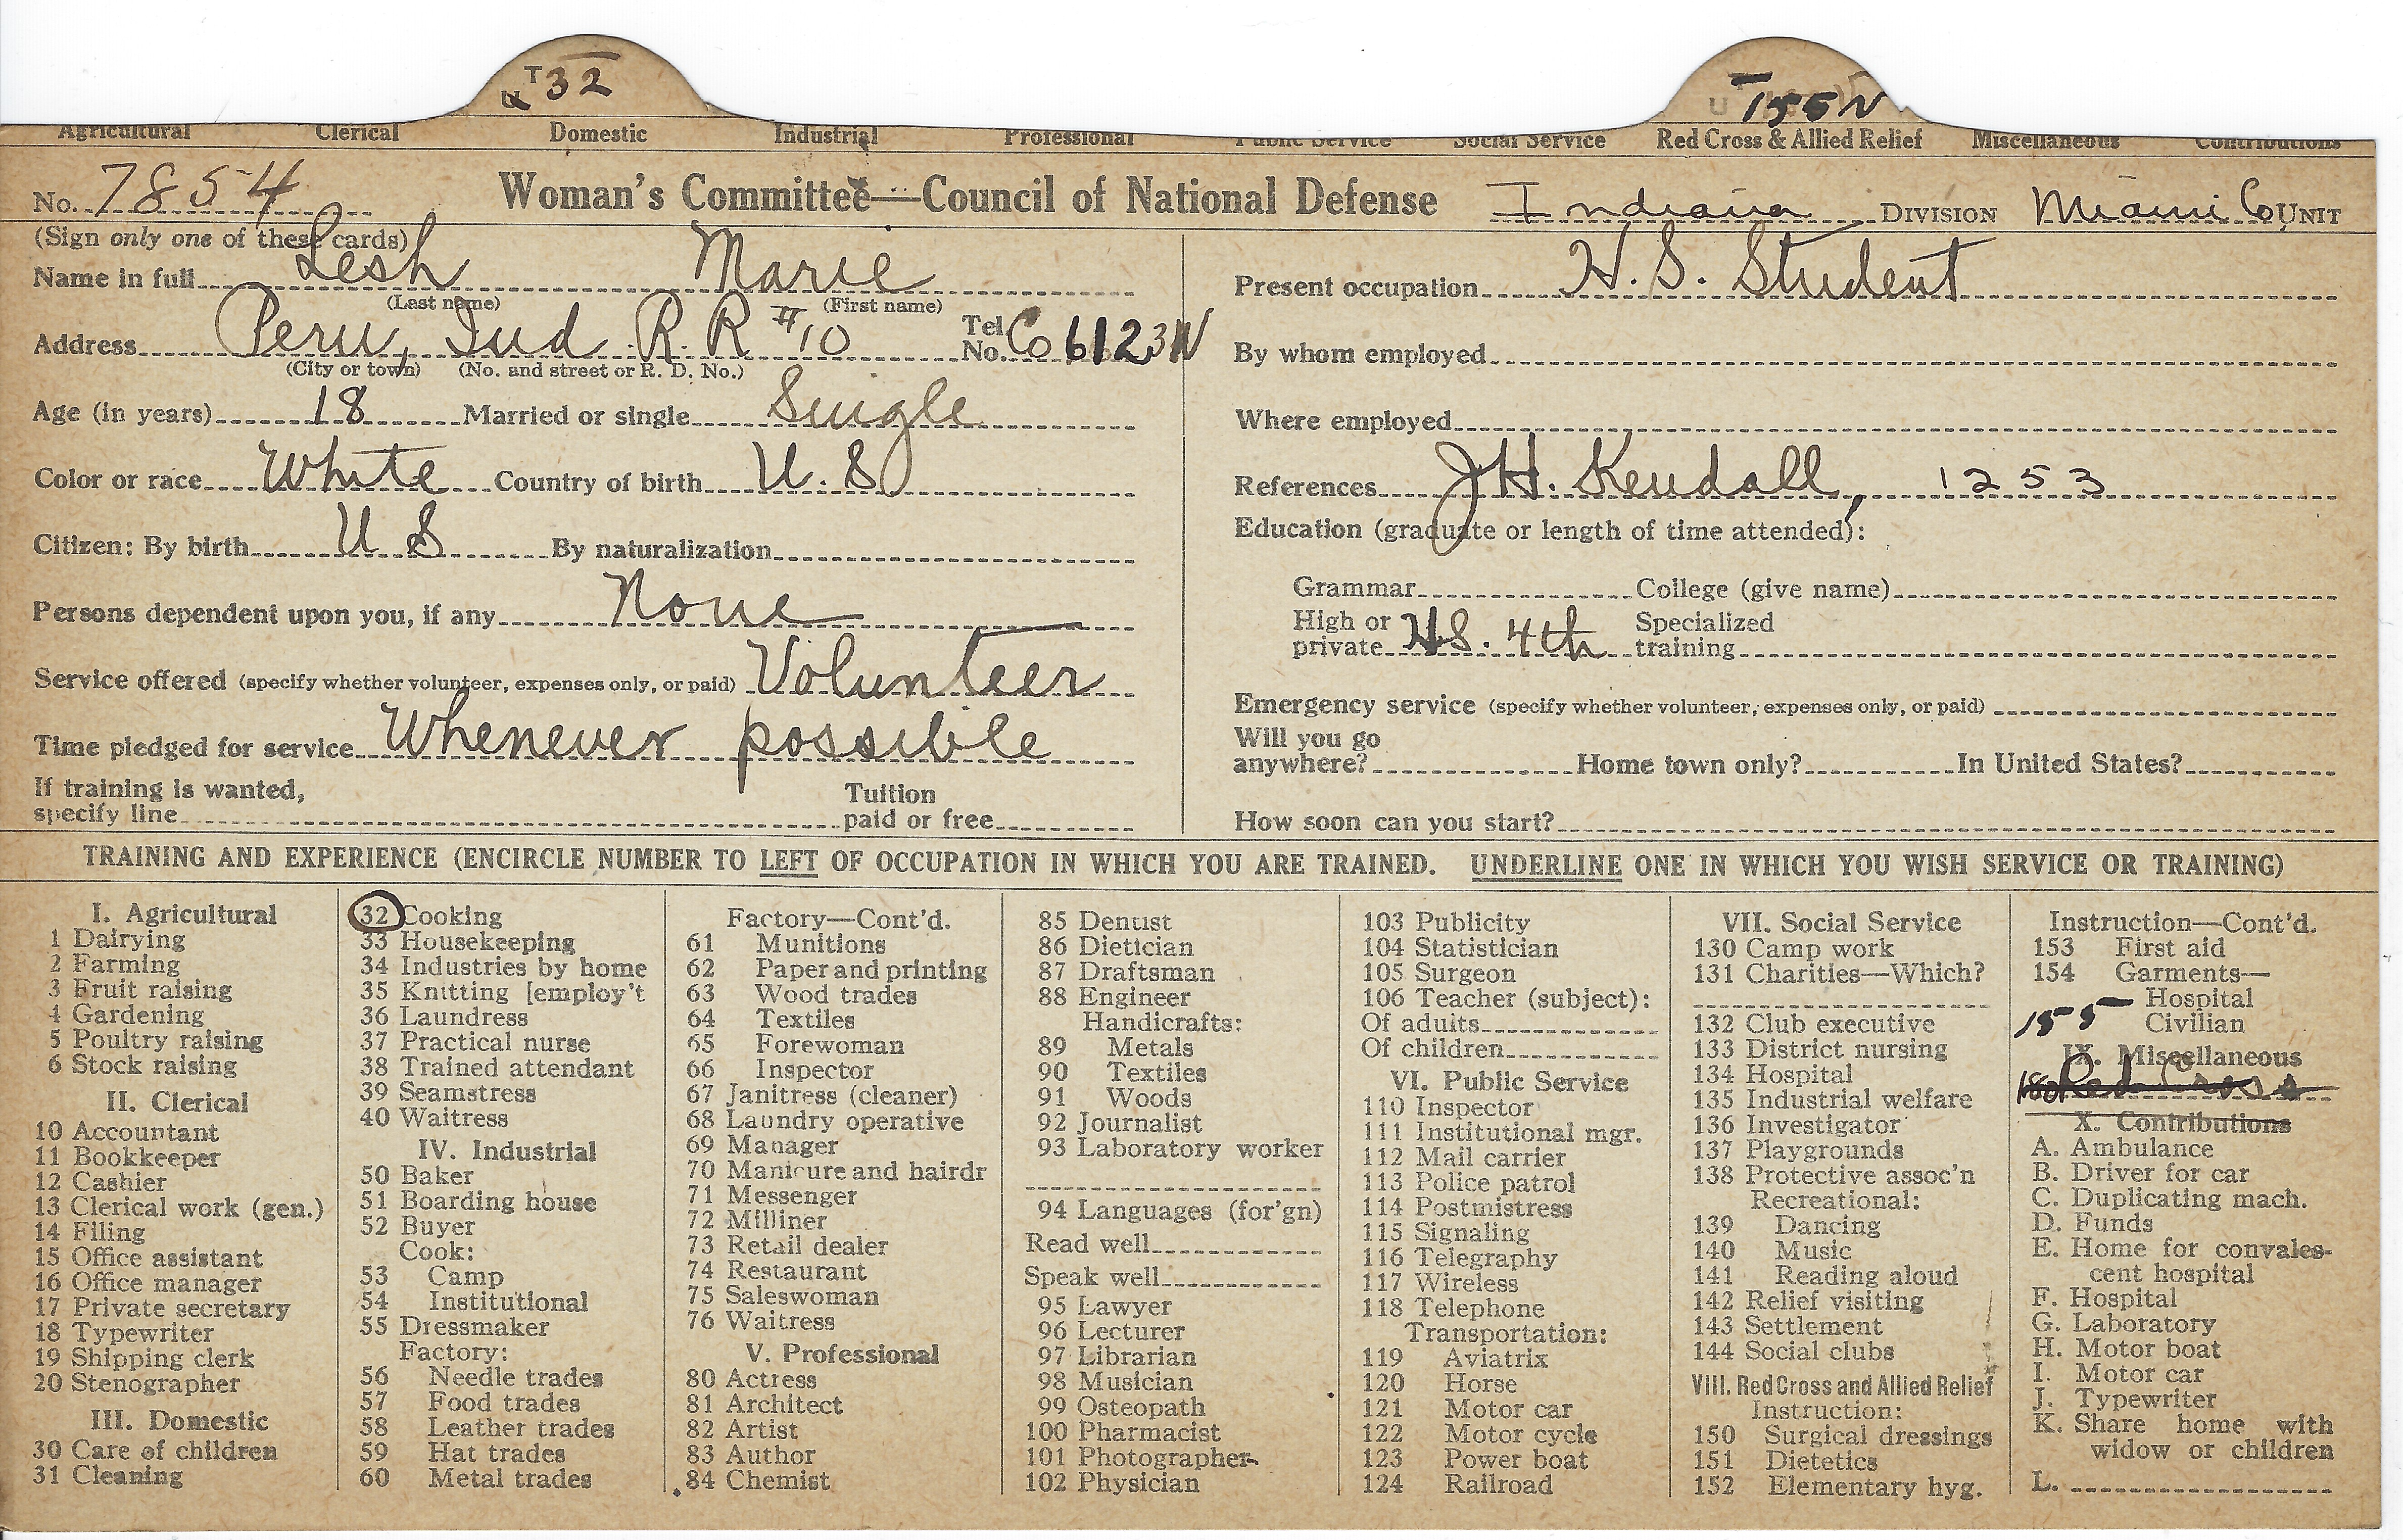 T 32
U T 155 N
Agricultural Clerical Domestic Industrial Professional Public Service Social Service Red Cross & Allied Relief Miscellaneous Contributions
No. 7854 Woman's Committee—Council of National Defense Indiana DIVISION Miami Co. UNIT
(Sign only one of these cards)
Name in full Lesh Marie
(Last name) (First name)
Address Peru, Ind R.R #10 Tel. No. Co 6123N
(City or town) (No. and street or R. D. No.)
Age (in years) 18 Married or single Single
Color or race White Country of birth U.S
Citizen: By birth U S By naturalization
Persons dependent upon you, if any None
Service offered (specify whether volunteer, expenses only, or paid) Volunteer
Time pledged for service Whenever possible
If training is wanted,
specify line Tuition paid or free
Present occupation H.S. Student
By whom employed
Where employed
References J H. Kendall, 1253
Education (graduate or length of time attended):
Grammar College (give name)
High or private H.S. 4th Specialized training
Emergency service (specify whether volunteer, expenses only, or paid)
Will you go
anywhere? Home town only? In United States?
How soon can you start?
TRAINING AND EXPERIENCE (ENCIRCLE NUMBER TO LEFT OF OCCUPATION IN WHICH YOU ARE TRAINED. UNDERLINE ONE IN WHICH YOU WISH SERVICE OR TRAINING)
I. Agricultural
1 Dairying
2 Farming
3 Fruit raising
4 Gardening
5 Poultry raising
6 Stock raising
II. Clerical
10 Accountant
11 Bookkeeper
12 Cashier
13 Clerical work (gen.)
14 Filing
15 Office assistant
16 Office manager
17 Private secretary
18 Typewriter
19 Shipping clerk
20 Stenographer
III. Domestic
30 Care of children
31 Cleaning
32 Cooking
33 Housekeeping
34 Industries by home
35 Knitting [employ't
36 Laundress
37 Practical nurse
38 Trained attendant
39 Seamstress
40 Waitress
IV. Industrial
50 Baker
51 Boarding house
52 Buyer
Cook:
53 Camp
54 Institutional
55 Dressmaker
Factory:
56 Needle trades
57 Food trades
58 Leather trades
59 Hat trades
60 Metal trades
Factory—Cont'd.
61 Munitions
62 Paper and printing
63 Wood trades
64 Textiles
65 Forewoman
66 Inspector
67 Janitress (cleaner)
68 Laundry operative
69 Manager
70 Manicure and hairdr
71 Messenger
72 Milliner
73 Retail dealer
74 Restaurant
75 Saleswoman
76 Waitress
V. Professional
80 Actress
81 Architect
82 Artist
83 Author
84 Chemist
85 Dentist
86 Dietician
87 Draftsman
88 Engineer
Handicrafts:
89 Metals
90 Textiles
91 Woods
92 Journalist
93 Laboratory worker
94 Languages (for'gn)
Read well
Speak well
95 Lawyer
96 Lecturer
97 Librarian
98 Musician
99 Osteopath
100 Pharmacist
101 Photographer
102 Physician
103 Publicity
104 Statistician
105 Surgeon
106 Teacher (subject):
Of adults
Of children
VI. Public Service
110 Inspector
111 Institutional mgr.
112 Mail carrier
113 Police patrol
114 Postmistress
115 Signaling
116 Telegraphy
117 Wireless
118 Telephone
Transportation:
119 Aviatrix
120 Horse
121 Motor car
122 Motor cycle
123 Power boat
124 Railroad
VII. Social Service
130 Camp work
131 Charities—Which?
132 Club executive
133 District nursing
134 Hospital
135 Industrial welfare
136 Investigator
137 Playgrounds
138 Protective assoc'n
Recreational:
139 Dancing
140 Music
141 Reading aloud
142 Relief visiting
143 Settlement
144 Social clubs
VIII. Red Cross and Allied Relief
Instruction:
150 Surgical dressings
151 Dietetics
152 Elementary hyg.
Instruction—Cont'd.
153 First aid
154 Garments—
Hospital
155 Civilian
IX. Miscellaneous
180 Red Cross
X. Contributions
A. Ambulance
B. Driver for car
C. Duplicating mach.
D. Funds
E. Home for convales-
cent hospital
F. Hospital
G. Laboratory
H. Motor boat
I. Motor car
J. Typewriter
K. Share home with
widow or children
L.